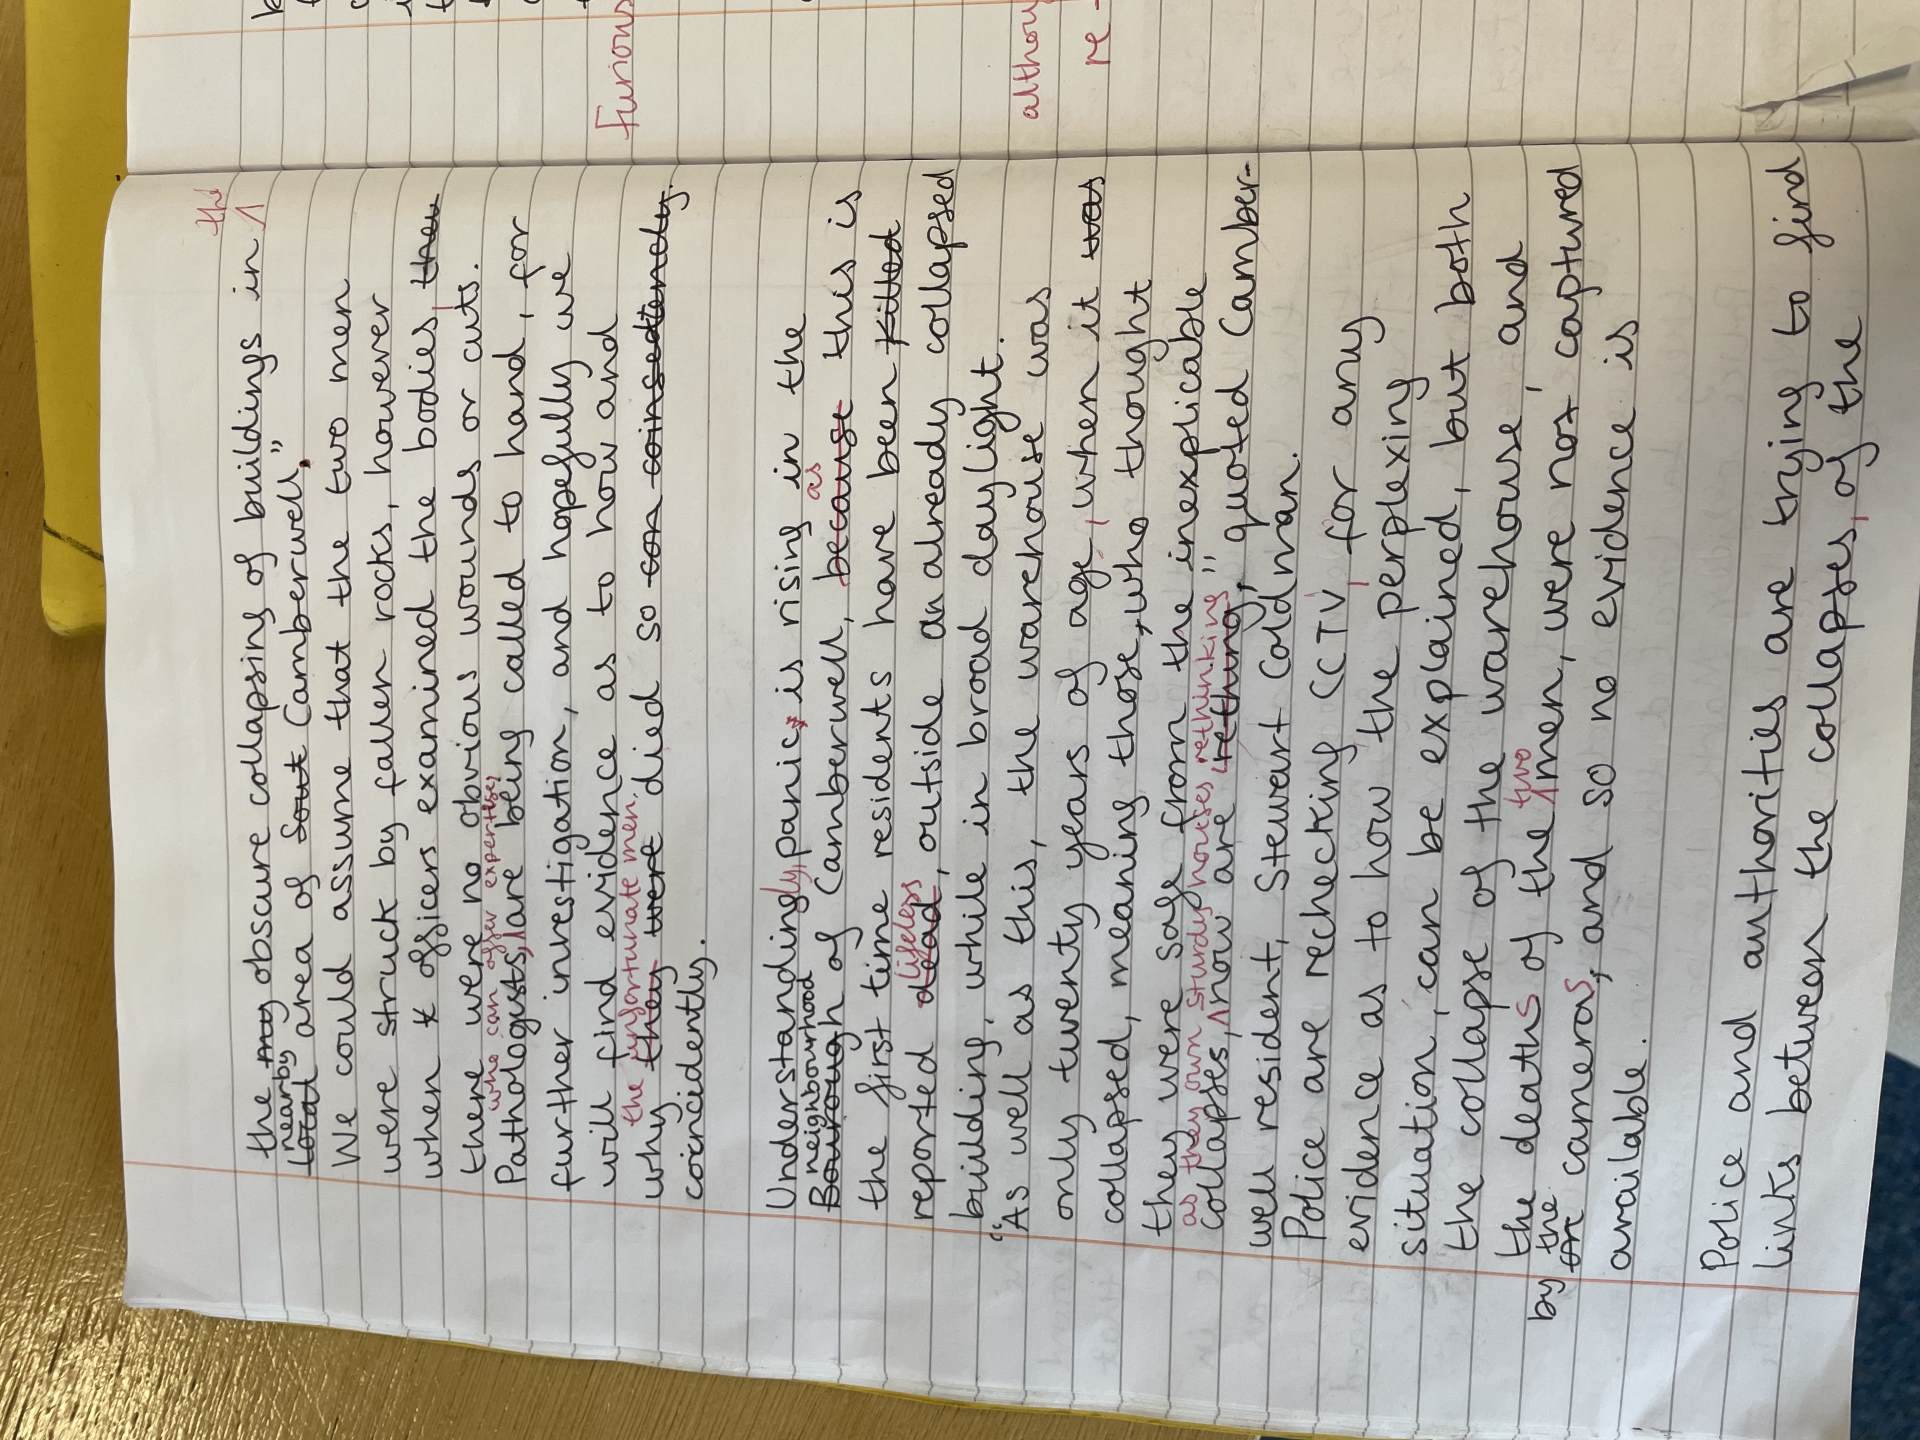 the
the my obscure collapsing of buildings in
nearby
local area of Sout Camberwell."
We could assume that the two men
were struck by fallen rocks, however
when officers examined the bodies, then
there were no obvious wounds or cuts.
who can offer expertise,
Pathologists, are being called to hand, for
further investigation, and hopefully we
will find evidence as to how and
the unfortunate men,
why they were died so con coinsedtendy.
coincidently.
Understandingly, panic, is rising in the
neighbourhood as
Bourough of Camberwell, because this is
the first time residents have been killed
lifeless
reported dead, outside an already collapsed
building, while in broad daylight.
"As well as this, the warehouse was
only twenty years of age, when it was
collapsed, meaning those, who thought
they were safe from the inexplicable
as they own sturdy houses rethinking
collapses, now are rething," quoted Camber-
well resident, Stewart Coldman.
Police are rechecking CCTV, for any
evidence as to how the perplexing
situation, can be explained, but both
the collapse of the warehouse, and
two
the deaths of the men, were not captured
by the
on cameras, and so no evidence is
available.
Police and authorities are trying to find
links between the collapses, of the
furious
althou
re-